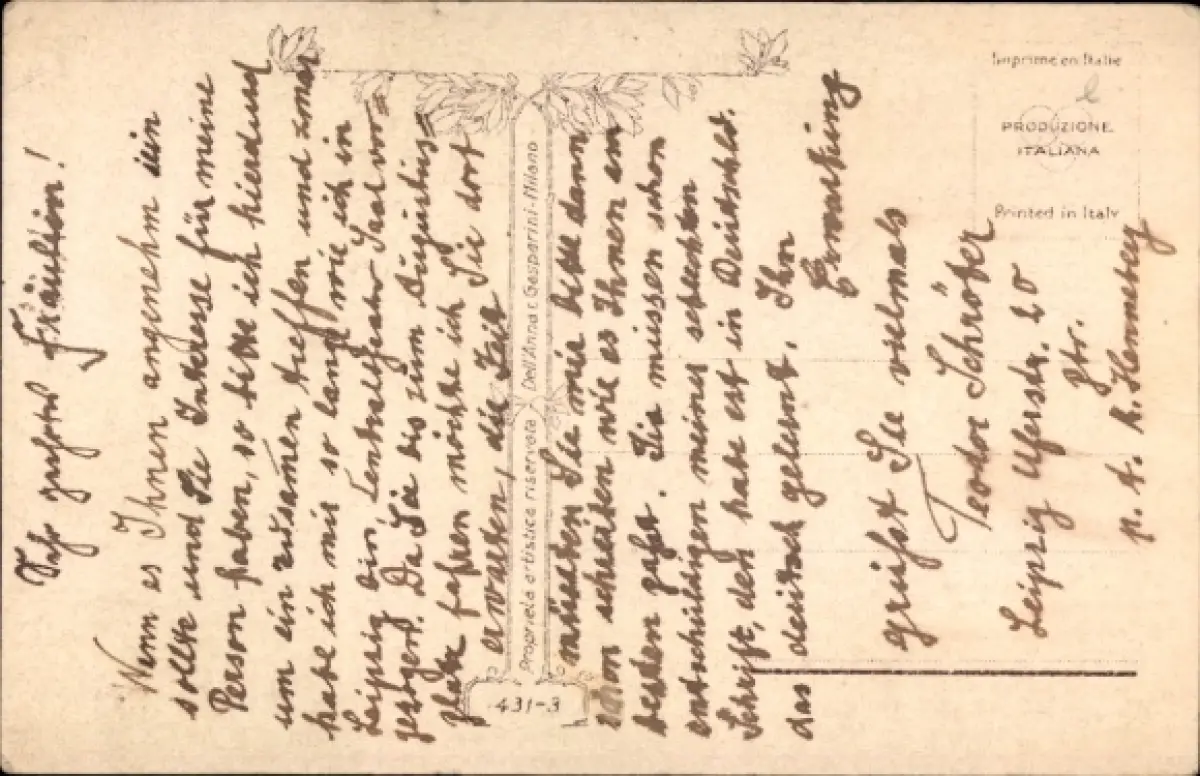 Sehr geehrtes Fräulein!
Wenn es Ihnen angenehm sein
sollte und Sie Interesse für meine
Person haben, so bitte ich hierdurch
um ein zusamen treffen und zwar
habe ich mir so lange wie ich in
Leipzig bin, Centraltheater Saal vor=
gezogen. Da Sie bis zum Augustus=
platz fahren möchte ich Sie dort
erwarten, die Zeit
müssten Sie mir bitte dann
schon schreiben wie es Ihnen am
besten passt. Sie müssen schon
entschuldigen meiner schlechten
Schrift, den habe erst in Deutschld.
das deutsch gelernt. Ihr
Erwartung
grüsst Sie vielmals
Teodor Schröter
Leipzig Uferstr. 20
Ztr.
p. A. h. Henneberg
Proprietà artistica riservata Dell'Anna e Gasparini-Milano
431-3
Imprimé en Italie
PRODUZIONE
ITALIANA
Printed in Italy